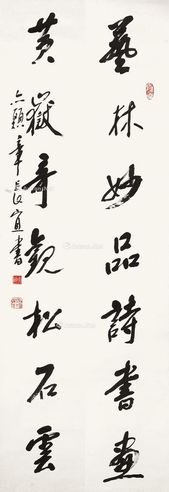 藝林妙品詩書畫
黃嶽奇觀松石雲
六順章長宜書